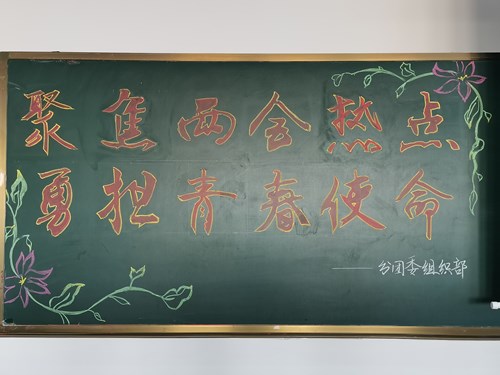 聚焦两会热点
勇担青春使命
——分团委组织部